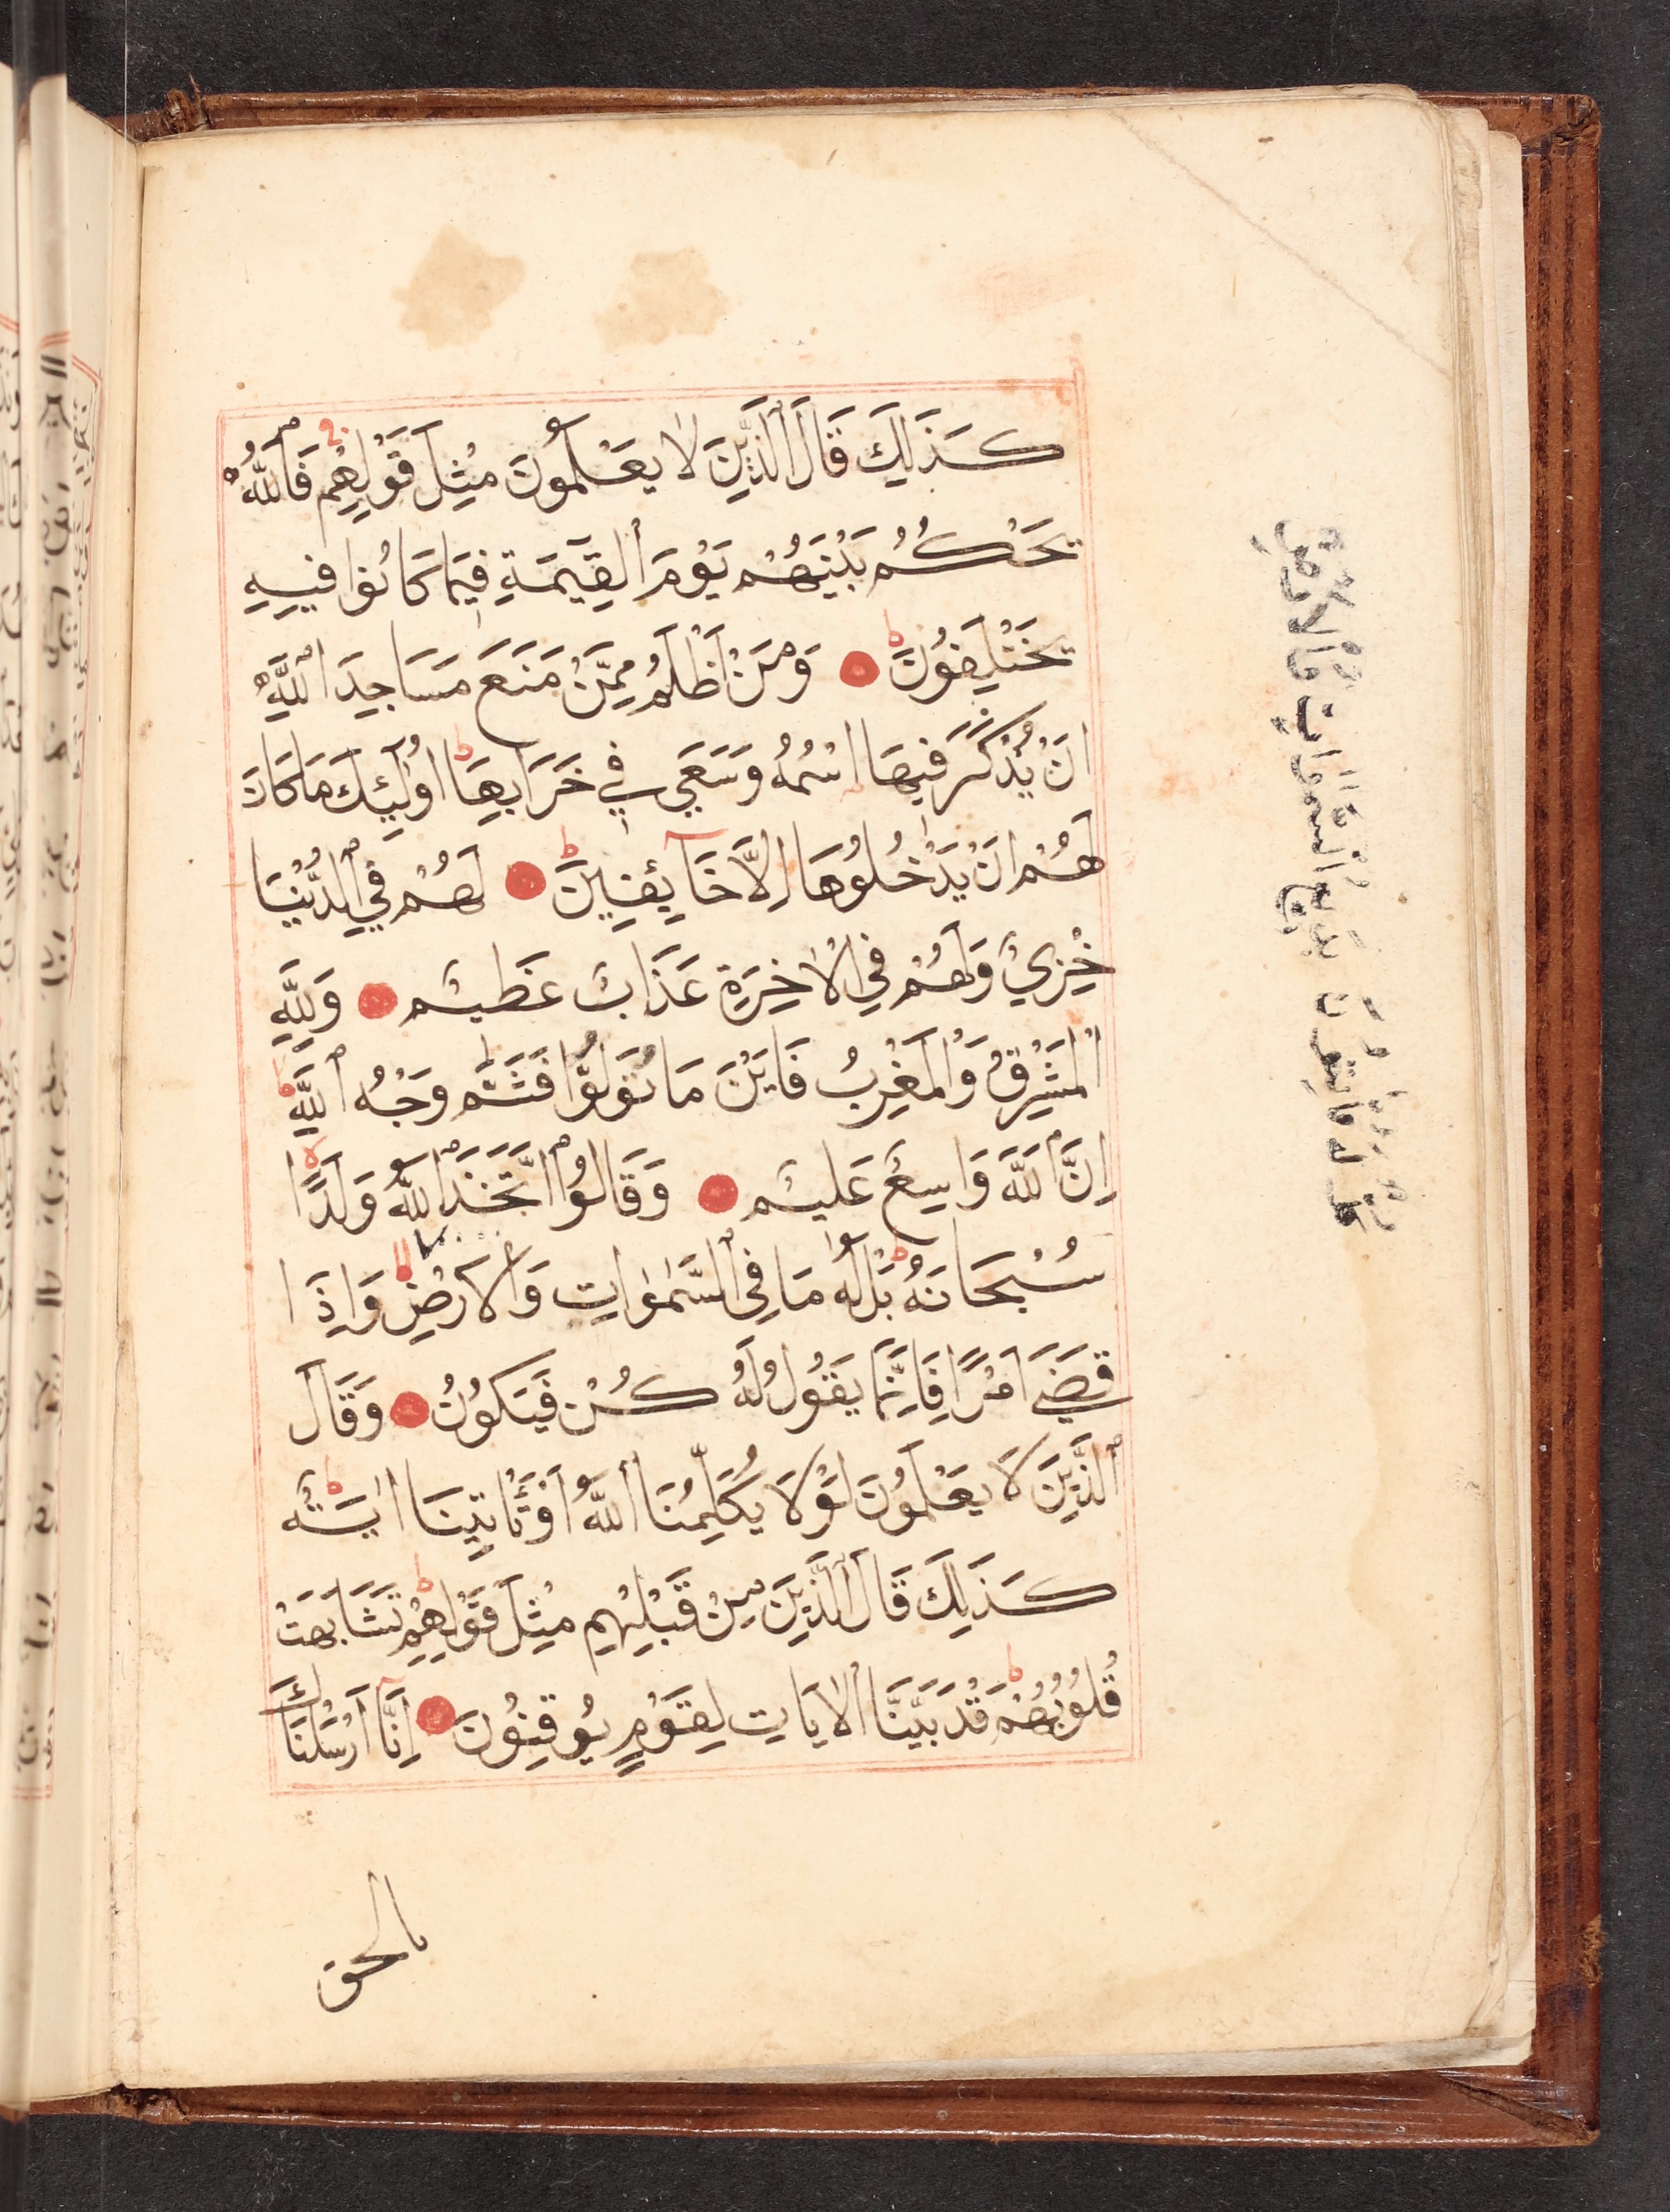 كَذَلِكَ قَالَ الَّذِينَ لَا يَعْلَمُونَ مِثْلَ قَوْلِهِمْ فَاللَّهُ
يَحْكُمُ بَيْنَهُمْ يَوْمَ الْقِيَمَةِ فِيمَا كَانُوا فِيهِ
يَخْتَلِفُونَ وَمَنْ أَظْلَمُ مِمَّنْ مَنَعَ مَسَاجِدَ اللَّهِ
اَنْ يُذْكَرَ فِيهَا اسْمُهُ وَسَعَى فِي خَرَابِهَا اُولَئِكَ مَا كَانَ
لَهُمْ اَنْ يَدْخُلُوهَا اِلَّا خَائِفِينَ لَهُمْ فِي الدُّنْيَا
خِزْيٌ وَلَهُمْ فِي الْاخِرَةِ عَذَابٌ عَظِيمٌ وَلِلَّهِ
الْمَشْرِقُ وَالْمَغْرِبُ فَاَيْنَ مَا تُوَلُّوا فَثَمَّ وَجْهُ اللَّهِ
اِنَّ اللَّهَ وَاسِعٌ عَلِيمٌ وَقَالُوا اتَّخَذَ اللَّهُ وَلَدًا
سُبْحَانَهُ بَلْ لَهُ مَا فِي السَّمٰوٰاتِ وَالْاَرْضِ وَاِذَا
قَضَى اَمْرًا فَاِنَّمَا يَقُولُ لَهُ كُنْ فَيَكُونُ وَقَالَ
الَّذِينَ لَا يَعْلَمُونَ لَوْلَا يُكَلِّمُنَا اللَّهُ اَوْ تَأْتِينَا اٰيَةٌ
كَذَلِكَ قَالَ الَّذِينَ مِنْ قَبْلِهِمْ مِثْلَ قَوْلِهِمْ تَشَابَهَتْ
قُلُوبُهُمْ قَدْ بَيَّنَّا الْاٰيَاتِ لِقَوْمٍ يُوقِنُونَ اِنَّا اَرْسَلْنَاكَ
بالحق
كل له قانتون بديع السموات والارض